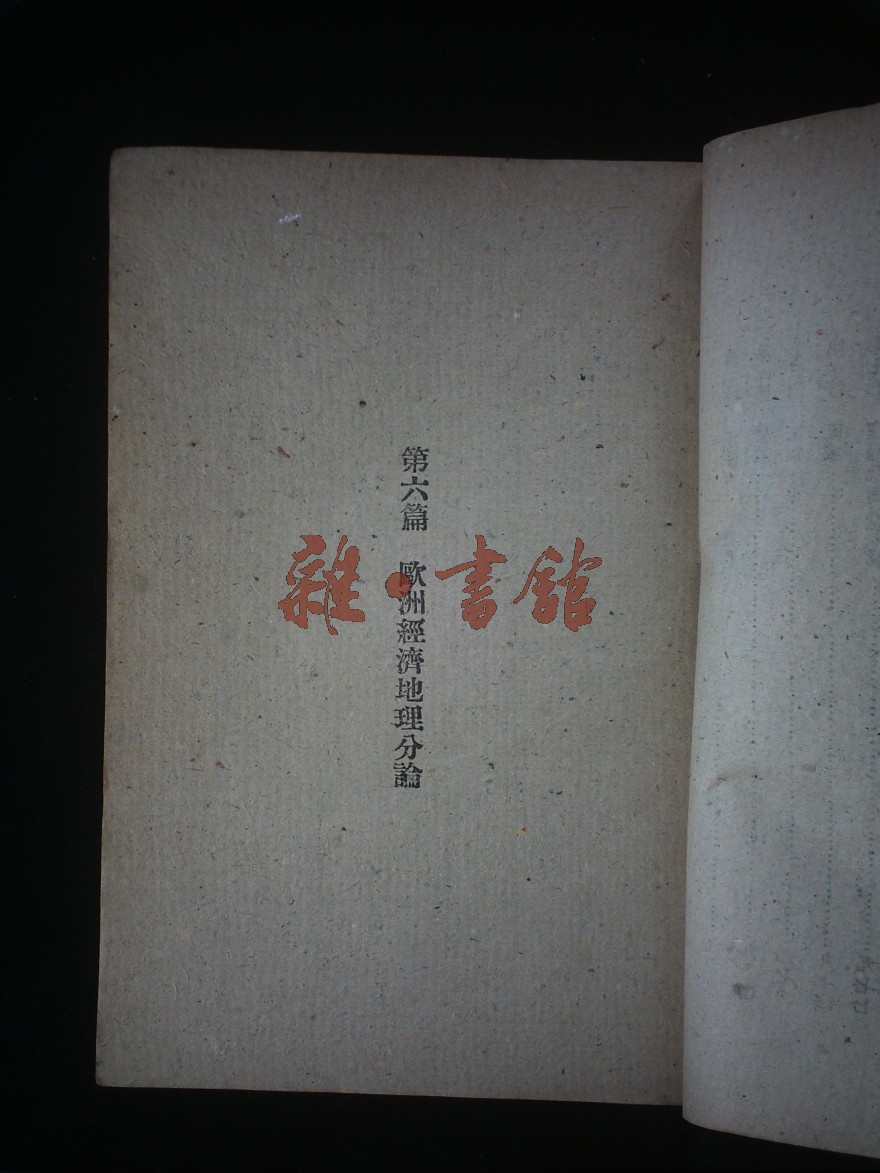 第六篇　歐洲經濟地理分論
雜·書館